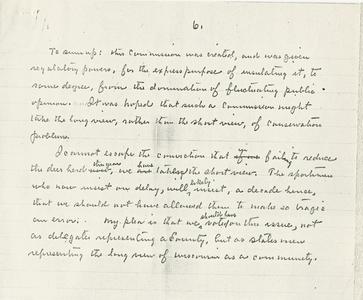 6.
To sum up: this commission was created, and was given
regulatory powers, for the express purpose of insulating it, to
some degree, from the domination of fluctuating public
opinion. It was hoped that such a commission might
take the long view, rather than the short view, of conservation
problems.
I cannot escape the conviction that if we fail to reduce
the deer herd this year, we have taken the short view. The sportsmen
who now insist on delay, will likely insist, a decade hence,
that we should not have allowed them to make so tragic
an error. My plea is that we should vote on this issue, not
as delegates representing a County, but as statesmen
representing the long view of Wisconsin as a community.